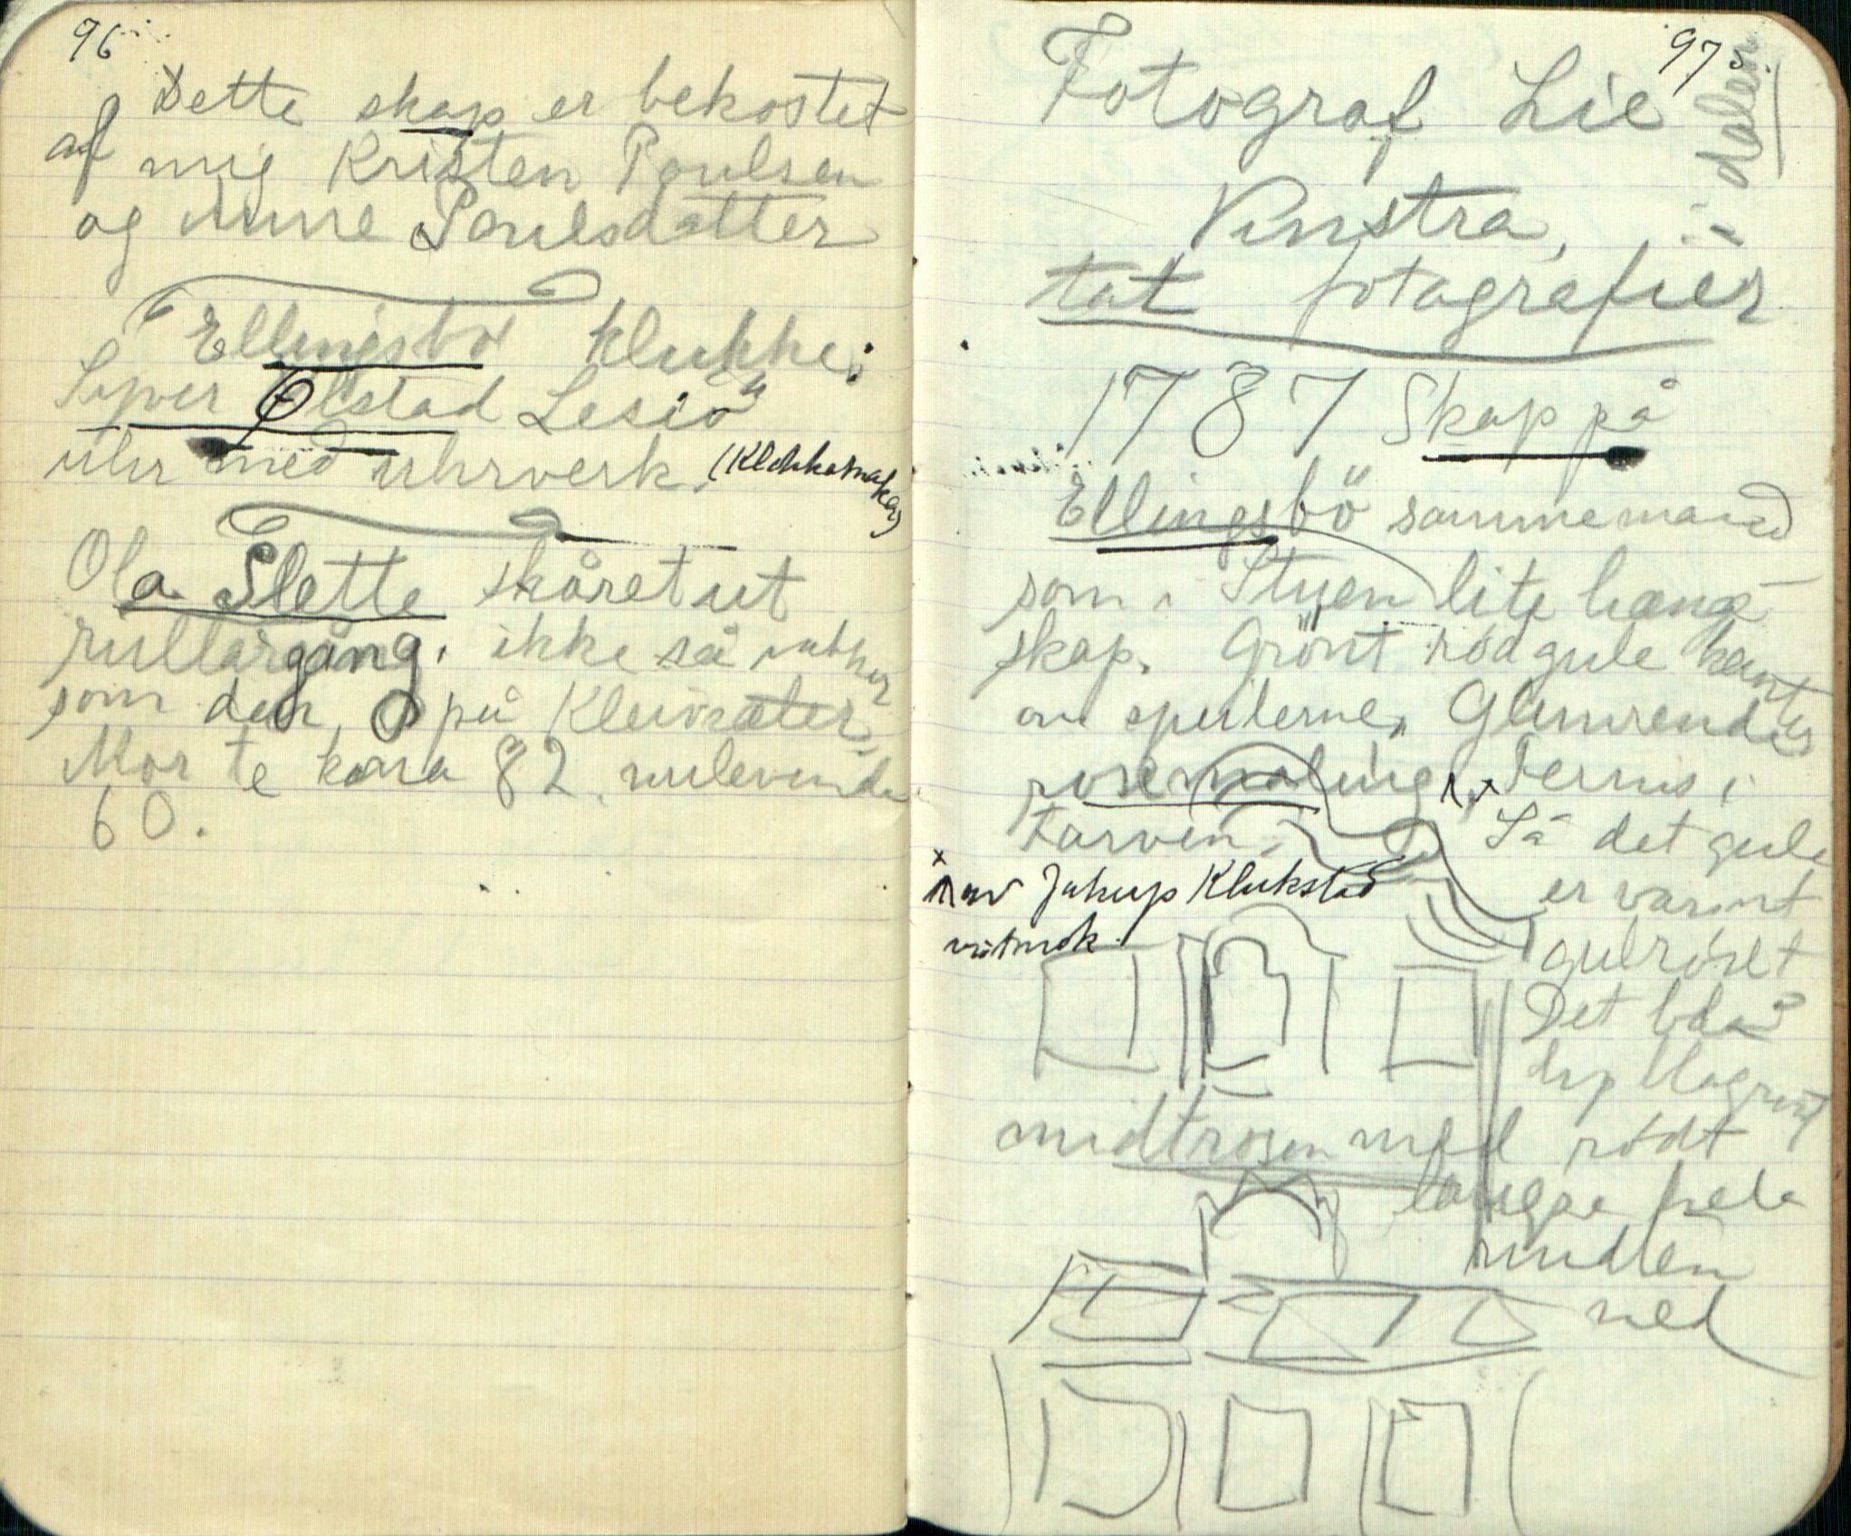 96
Dette skap er bekostet
af mig Kristen Poulsen
og Poulsdatter
Ellingsbö klukke:
Syver Ølstad Lesjö
uhr med uhrverk. (Klokkemaker)
Ola Slette skåret ut
rullargang. ikke så vakker
som den på Kleivsæter.
Mor te kona 82. nulevende
60.
97
Fotograf Lie
Vinstra,
dalen
tat fotografier
1787 Skap på
Ellingsbö samme mand
som i Styen lite hænge
skap. Grönt röd gule kanter
om speilerne. Glimrende
rosemaling x Fernis i
Farven. Så det gule
x av Jakup Klukstad
er varmt
gulröset
Det blå
dyp blagrönt
midtrosen med rödt
langse hele
midten
ned